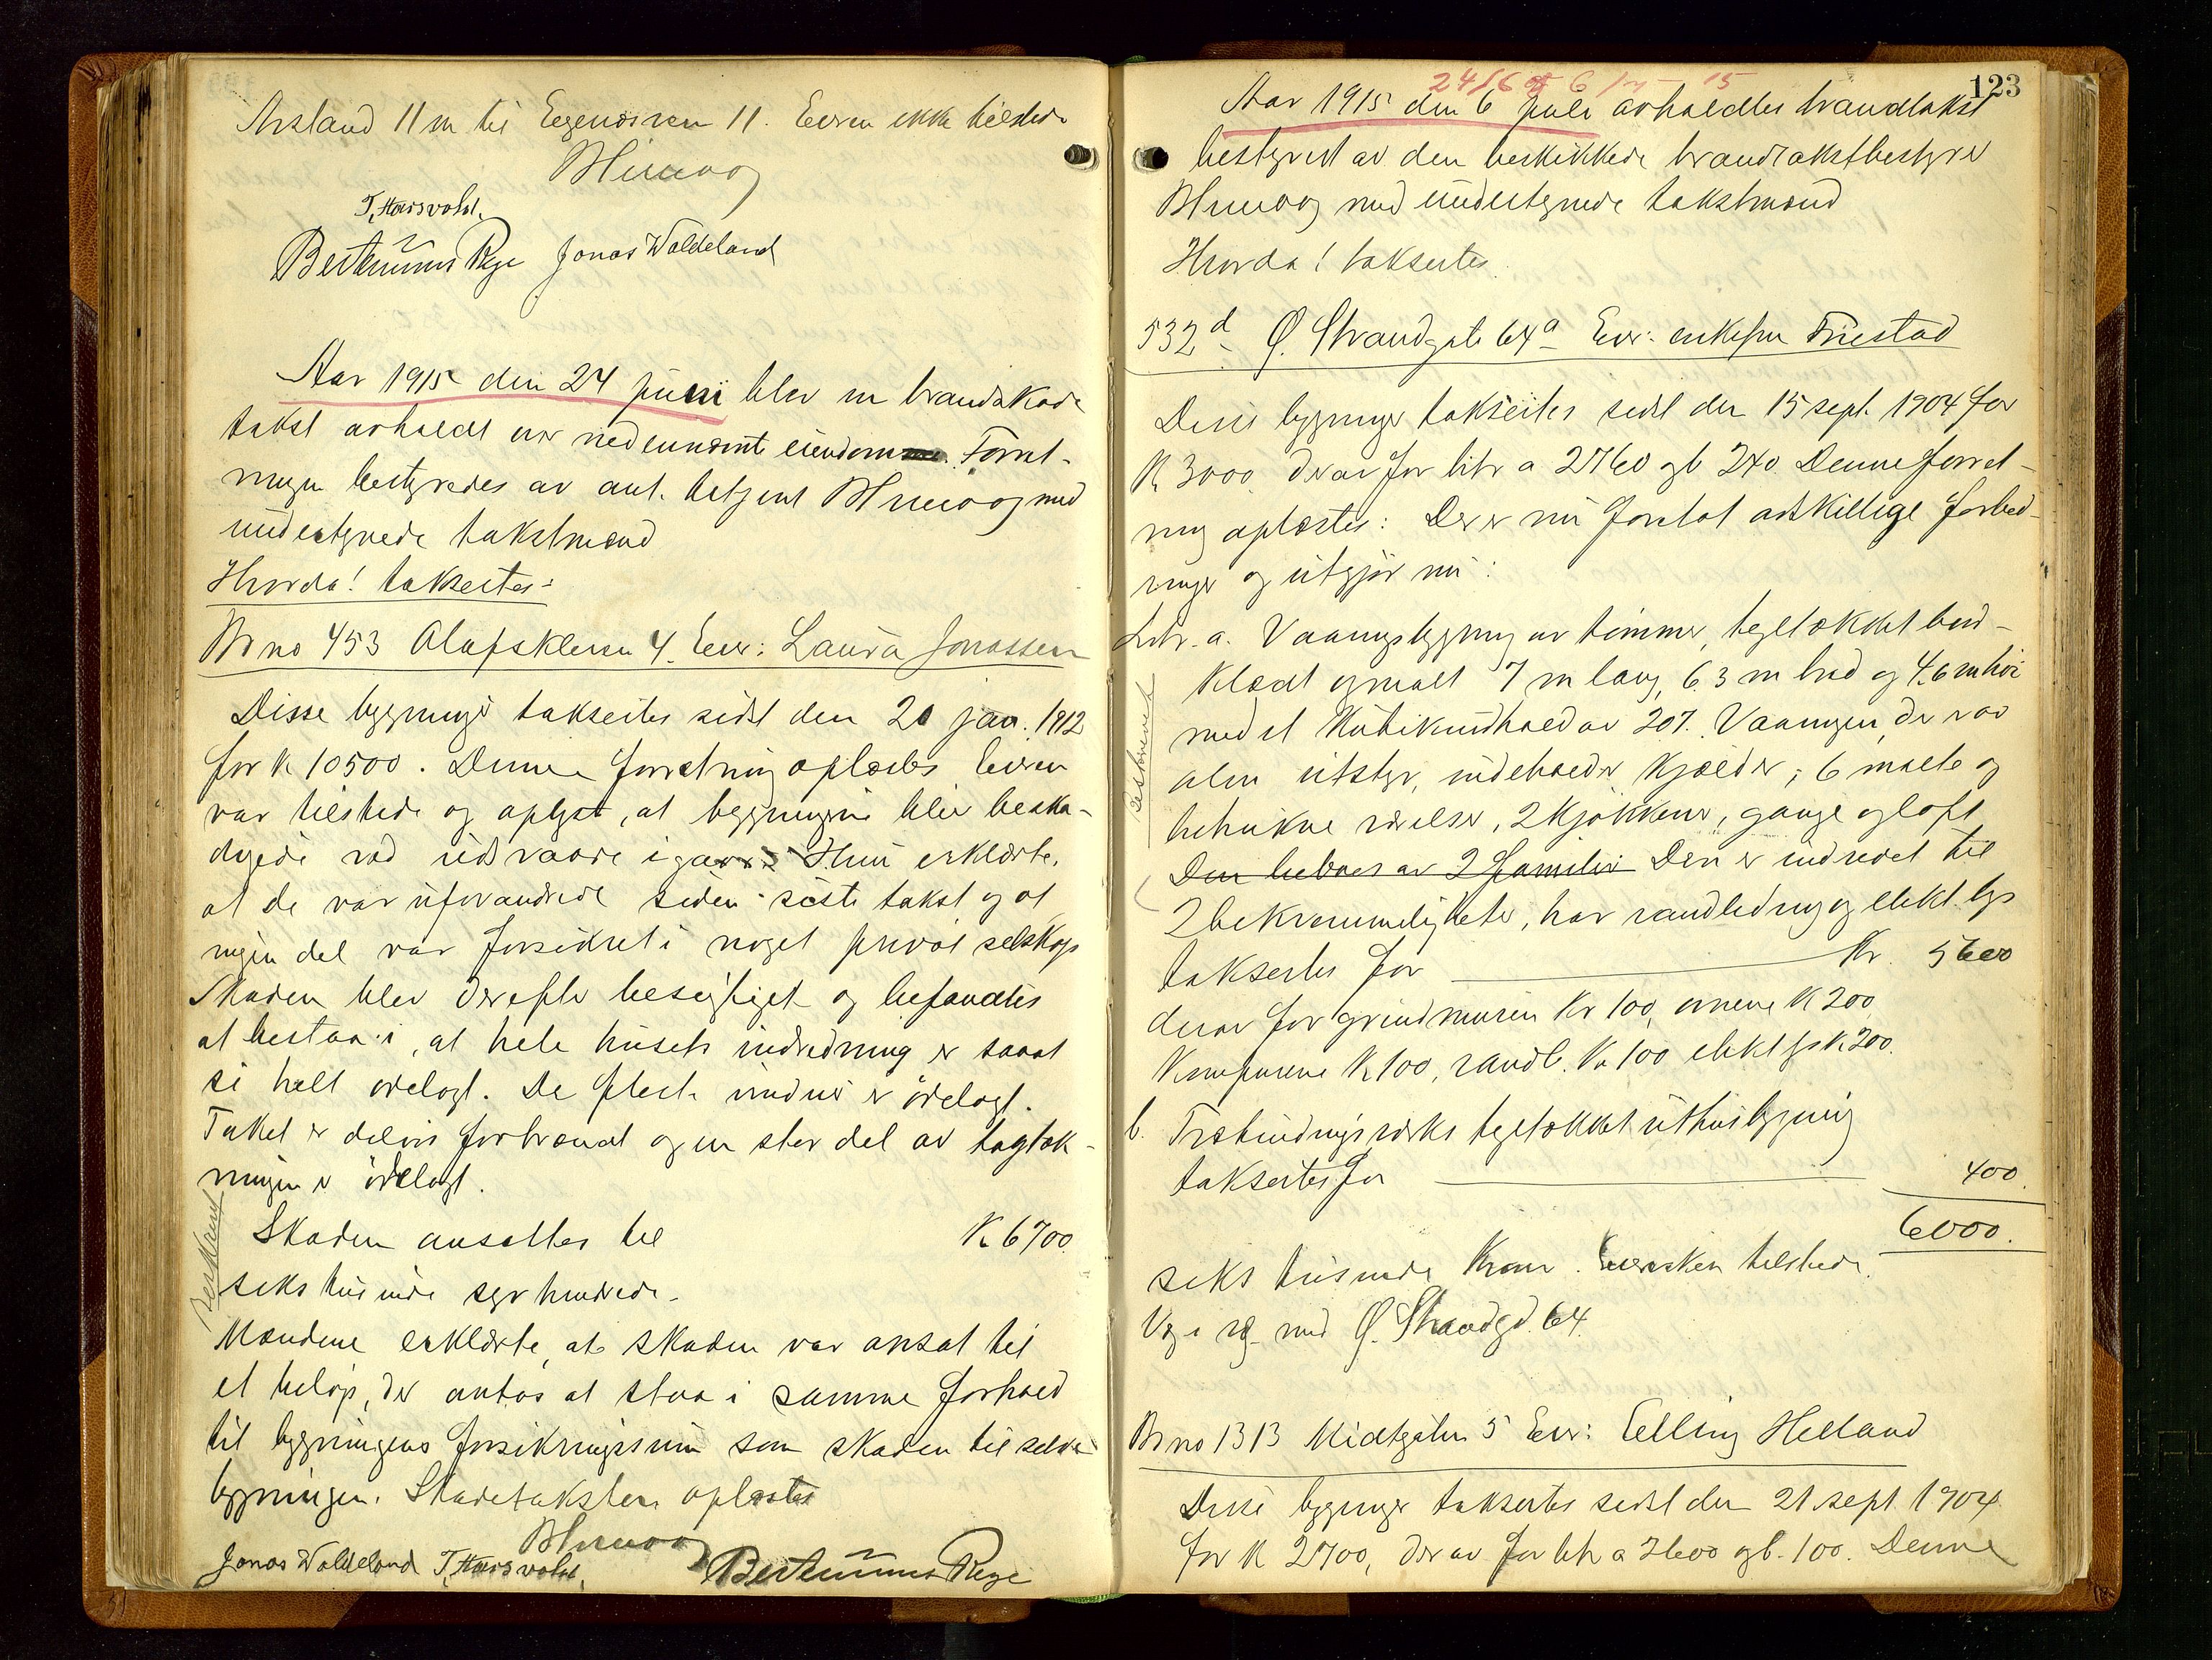 Avstand 11 m til Eegenæsveien 11. Eieren ikke tilstede
T. Hausvold.
Bertinius Rege Jonas Waldeland
Aar 1915 den 24 juni blev en brandskade
takst avholdt over nedennævnte eiendom. Forret-
ningen bestyredes av ant. betjent med
undertegnede takstmænd
Hvorda! takseertes:
Br no 453 Olafskleven 4. Eier: Laura Jonassen
Disse bygninger takseertes sidst den 20 jan. 1912
for K 10500. Denne forretning oplæstes Eieren
var tilstede og oplyst, at bygningene blev beska-
digede ved ildsvaade igaar. Hun erklærte,
at de var uforandrede siden siste takst og at
ingen del var forsikret i noget privat selskap
Skaden blev derefter besigtiget og befandtes
at bestaa i, at hele husets indredning er saaat
si helt ødelagt. De fleste vinduer er ødelagt.
Taket er delvis forbrændt og en stor del av tagtæk-
ningen er ødelagt.
Beskrevet
Skaden ansættes til K 6700
seks tusinde syv hundrede.
Mændene erklærte, at skaden var ansat til
et beløp, der antas at staa i samme forhold
til bygningens forsikringssum som skaden til selve
bygningen. Skadetaksten oplæstes
Jonas Waldeland T. Hausvold. Bertinius Rege
123
24/6 og 6/7 - 15
Aar 1915 den 6 juli avholdtes brandtakst
bestyret av den beskikkede brandtakstbestyrer
med undertegnede takstmænd
Hvorda! takseertes
532d Ø. Strandgate 64a Eier: enkefru Friestad
Disse bygninger takseertes sidst den 15 sept. 1904 for
K 3000 derav for litr a 2760 og b 240. Denne forret-
ning oplæstes: Der er nu foretat adskillige forbed-
ringer og utgjør nu:
Litr. a. Vaaningsbygning av tømmer, tegltækket bord-
klædt og malt 7 m lang, 6.3 m bred og 4.6 m høi
med et kubikindhold av 207. Vaaningen, der var
alm utstyr, indeholder kjælder, 6 malte og
betrukne værelser, 2 kjøkkener, gange og loft
Den beboes av 2 familier Den er indredet til
2 bekvemmeligheter, har vandledning og elekt. lys
takseertes for Kr. 5600
Beskrevet
derav for grundmuren Kr 100, ovnene K 200
Komfurene K 100, vandl. Kr 100 elekt lys K 200.
b. Træbindingsverks tegltækket uthusbygning
takseertes for 400.
6000.
seks tusinde Kroner. Eiersken tilstede.
Vg i vg med Ø. Strandgd. 64.
Br no 1313 Midtgaten 5 Eier: Elling Helland
Disse bygninger takseertes sidst den 21 sept 1904
for K 2700, derav for litr a 2600 og b. 100. Denne